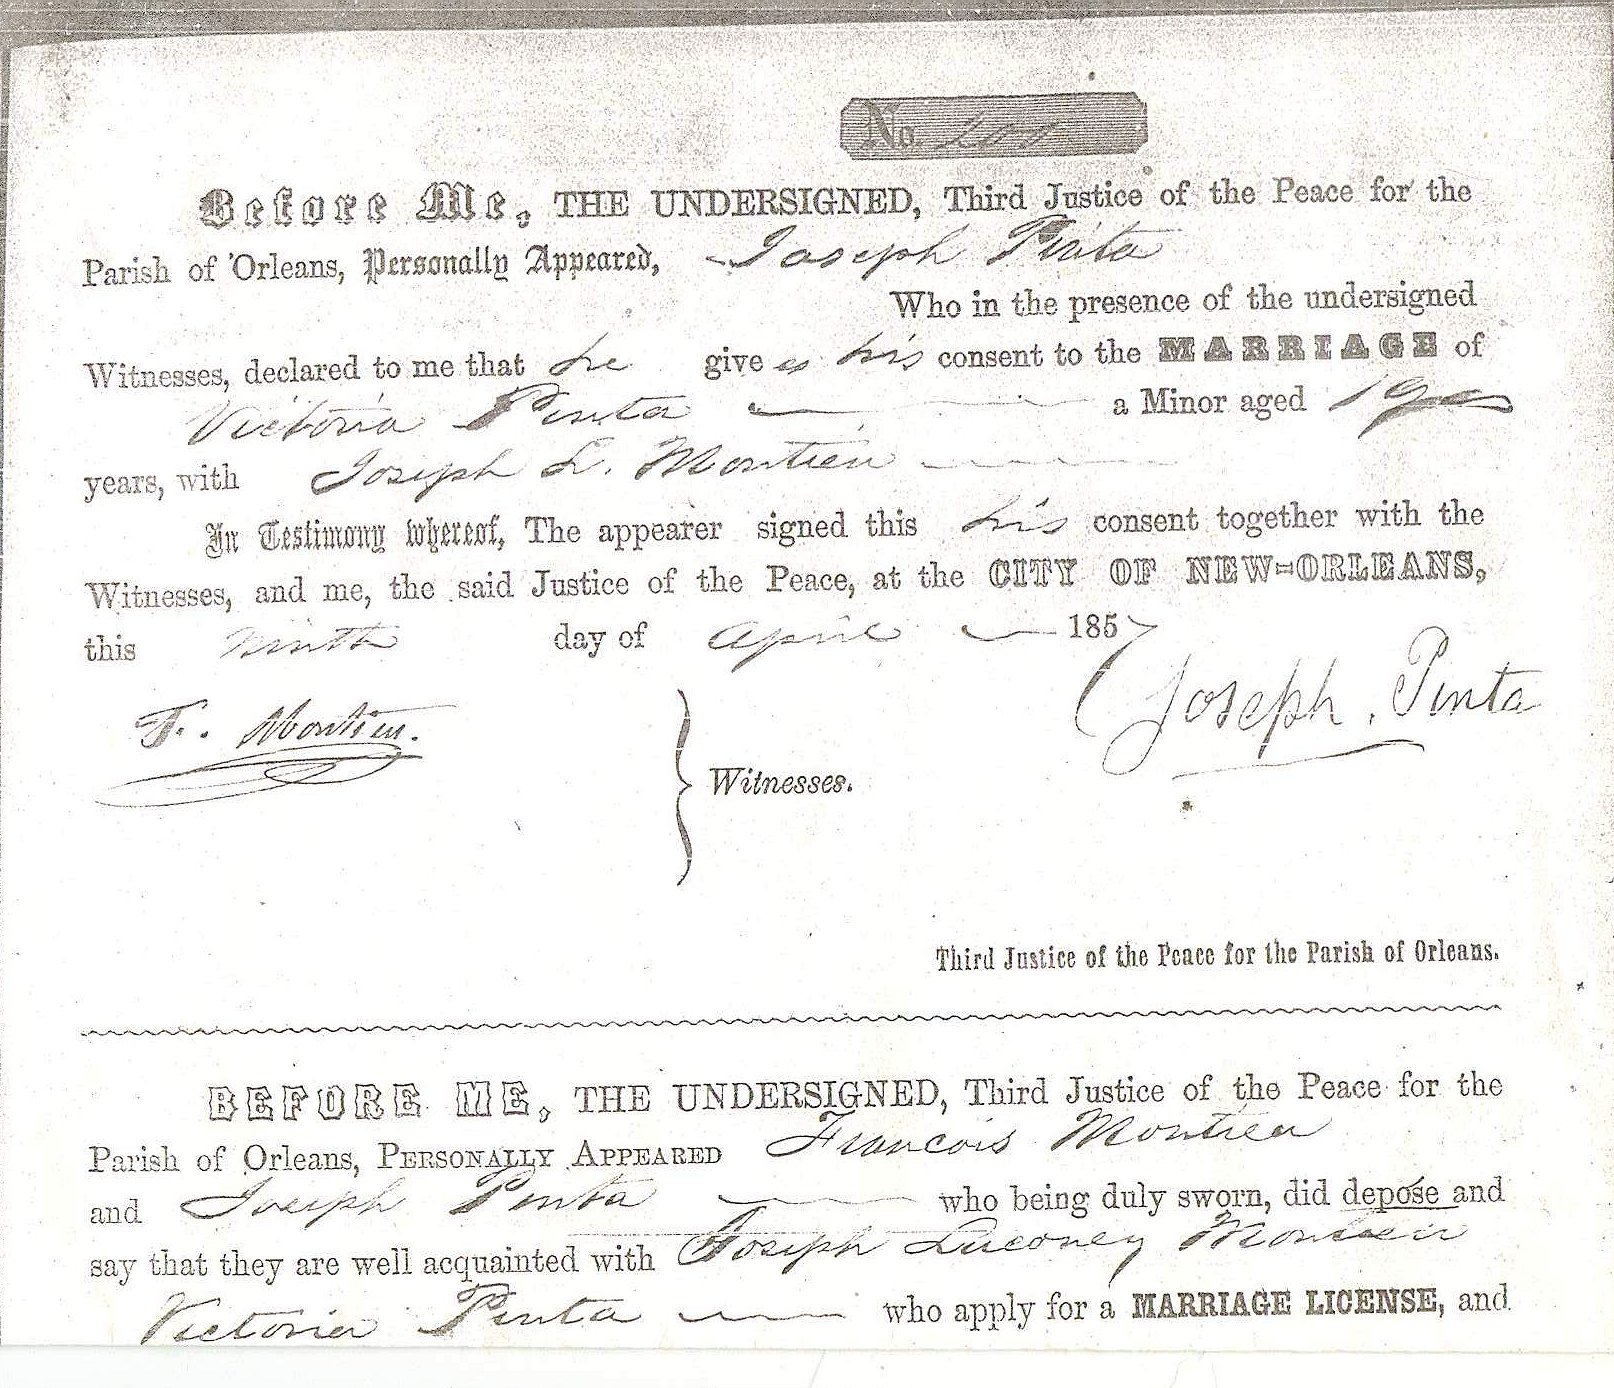 No.
Before Me, THE UNDERSIGNED, Third Justice of the Peace for the
Parish of Orleans, Personally Appeared, Joseph Pinta
Who in the presence of the undersigned
Witnesses, declared to me that he give es his consent to the MARRIAGE of
Victoria Pinta a Minor aged 19
years, with Joseph L. Montieu
In Testimony whereof, The appearer signed this his consent together with the
Witnesses, and me, the said Justice of the Peace, at the CITY OF NEW=ORLEANS,
this ninth day of April 1857
F. Montieu.
Joseph Pinta
Witnesses.
Third Justice of the Peace for the Parish of Orleans.
BEFORE ME, THE UNDERSIGNED, Third Justice of the Peace for the
Parish of Orleans, PERSONALLY APPEARED Francois Montieu
and Joseph Pinta who being duly sworn, did depose and
say that they are well acquainted with Joseph Montieu
Victoria Pinta who apply for a MARRIAGE LICENSE, and